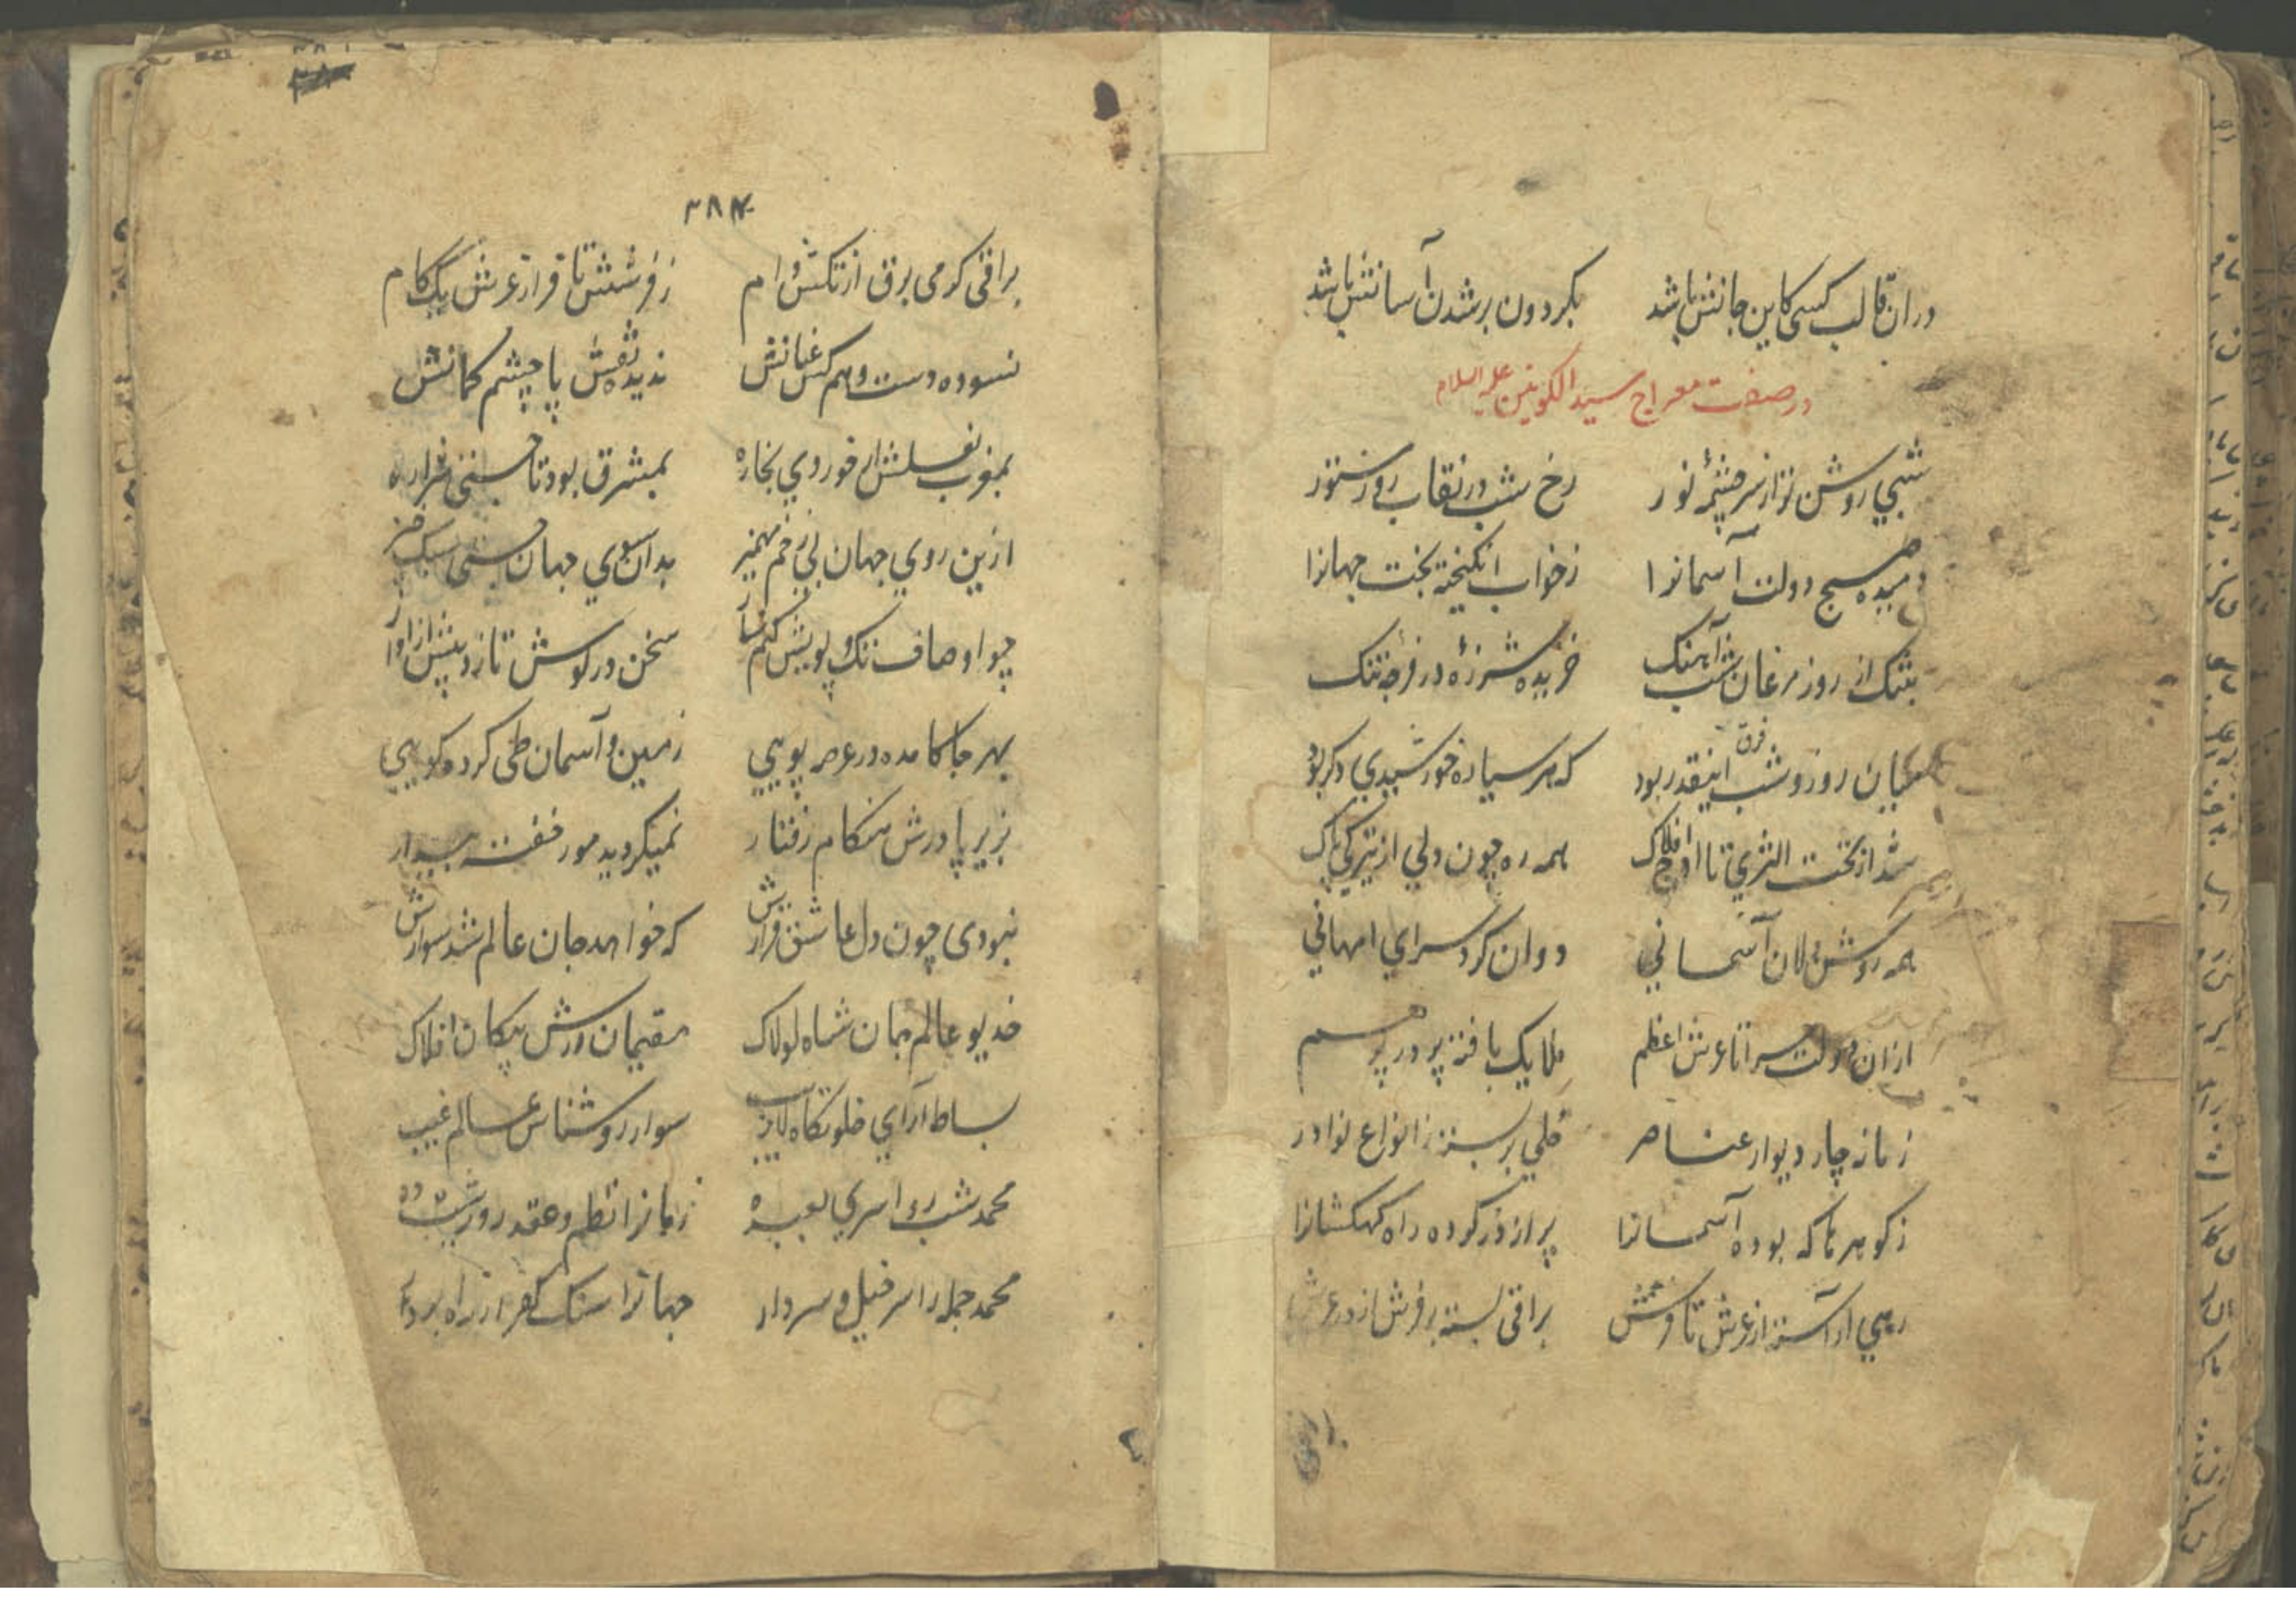 در ان قالب کسی کاین جانش باشد بکردون بر شدن آسانش باشد
در صفت معراج سید الکونین علیه السلام
شبي روشن تر از سر چشمهٔ نور رخ شب در نقاب روز مستور
دمیده صبح دولت آسمانرا ز خواب انکیخته بخت جهانرا
بتنک از روز مرغان شب آهنک خزیده شب پره در فرجه تنک
میان روز و شب فرق اینقدر بود که هر سیاره خورشیدي دکر بود
شد از تحت الثري تا اوج افلاک همه ره چون دلي از تیرکي پاک
همه روشن دلان آسماني دوان کرد سراي امهاني
ازان دولت سرا تا عرش اعظم ملایک بافته پر در پر هم
زمانه چار دیوار عناصر حلي بر بسته ز انواع نوادر
ز کوهرها که بوده آسمانرا پر از در کرده راه کهکشانرا
رهي آراسته از عرش تا فرش براقی بسته بر فرش از در عرش
۳۸۴
براقی کرمی برق از تکش وام ز فرشش تا فراز عرش یک کام
نسوده دست وهم کس عنانش ندیده نقش پا چشم کمانش
بمغرب نعلش ار خوردي بخاره بمشرق بود تا جستی شراره
ازین روي جهان بي زخم مهمیز بدان سوي جهان جستی سبک خیز
چو اوصاف تک و پویش کنم ساز سخن در کوش تازد پیش از آواز
بهر جا کامده در عرصه پویي زمین و آسمان طی کرده کویي
بزیر پا درش هنکام رفتار نمیکردید مور خفته بیدار
نبودی چون دل عاشق قرارش که خواهد جان عالم شد سوارش
خدیو عالم جان شاه لولاک مقیمان درش سکان افلاک
بساط آرآي خلوتکاه لاریب سوار روشناس عالم غیب
محمد شب رو اسري بعبده زمانرا نظم و عقد روز و شب ده
محمد جمله را سر خیل و سردار جهانرا سنک کفر از راه بردار